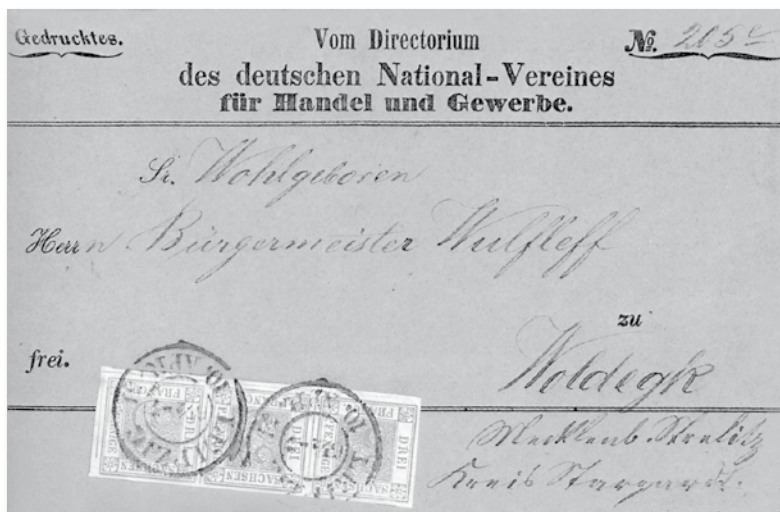 Gedrucktes.
Vom Directorium
No. 205
des deutschen National-Vereines
für Handel und Gewerbe.
Sr. Wohlgeboren
Herrn Bürgermeister Wulfleff
zu
frei.
Woldegk
Mecklenb. Strelitz
Kreis Stargardt.
DREI
SACHSEN